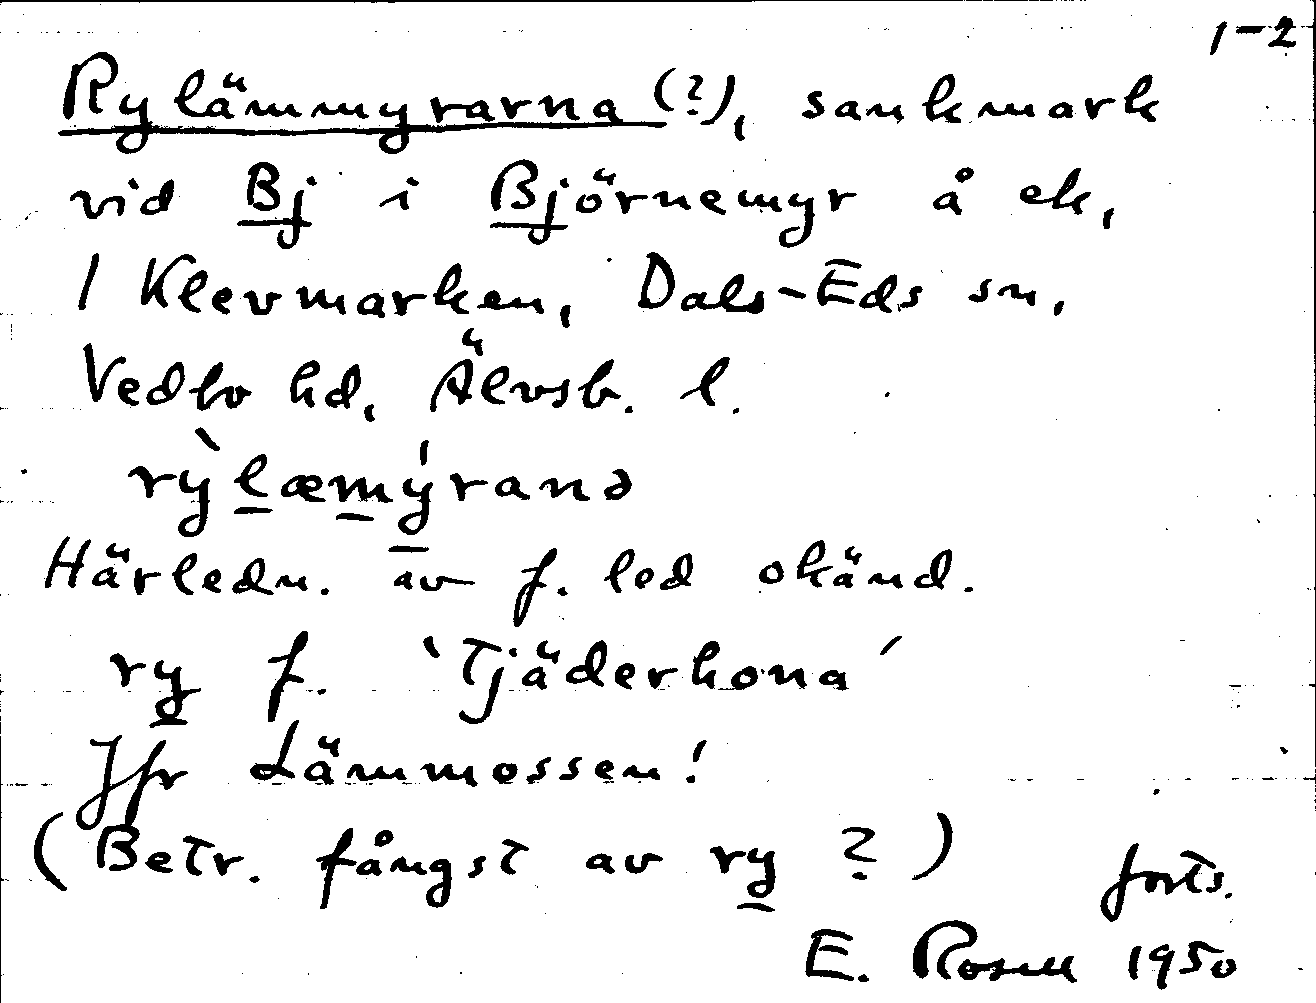 1-2
Rylämmyrarna (?), sankmark
vid Bj i Björnemyr å ek,
1 Klevmarken, Dals-Eds sn,
Vedbo hd, Älvsb. l.
rỳlæmýranə
Härledn. av f. led okänd.
ry f. 'Tjäderhona'
Jfr Lämmossen!
(Betr. fångst av ry ?)
forts.
E. Rosell 1950